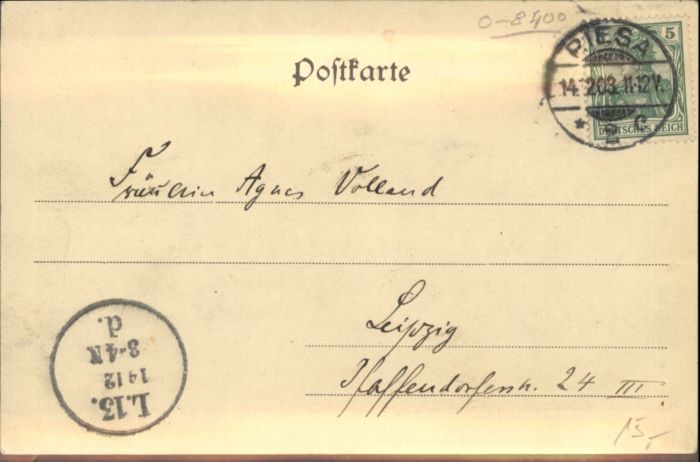 O-8400
Postkarte
RIESA
14.12.03. 11-12V.
* 2 c
5
DEUTSCHES REICH
Fräulein Agnes Volland
Leipzig
Pfaffendorferstr. 24 III.
L.13.
14 12
3-4 N
d.
15,-